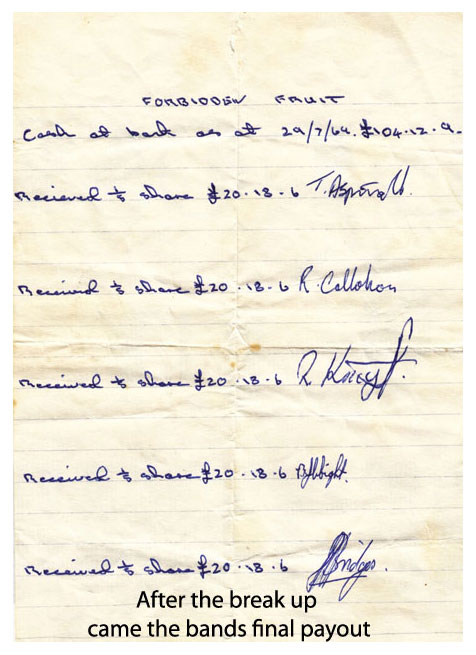 FORBIDDEN FRUIT
Cash at bank as at 29/7/69. £104.12.9.
Recieved ⅕ share £20.18.6 T. Aspinall.
Received ⅕ share £20.18.6 R. Callahan
Received ⅕ share £20.18.6 R
Received ⅕ share £20.18.6
Received ⅕ share £20.18.6 Bridges.
After the break up
came the bands final payout